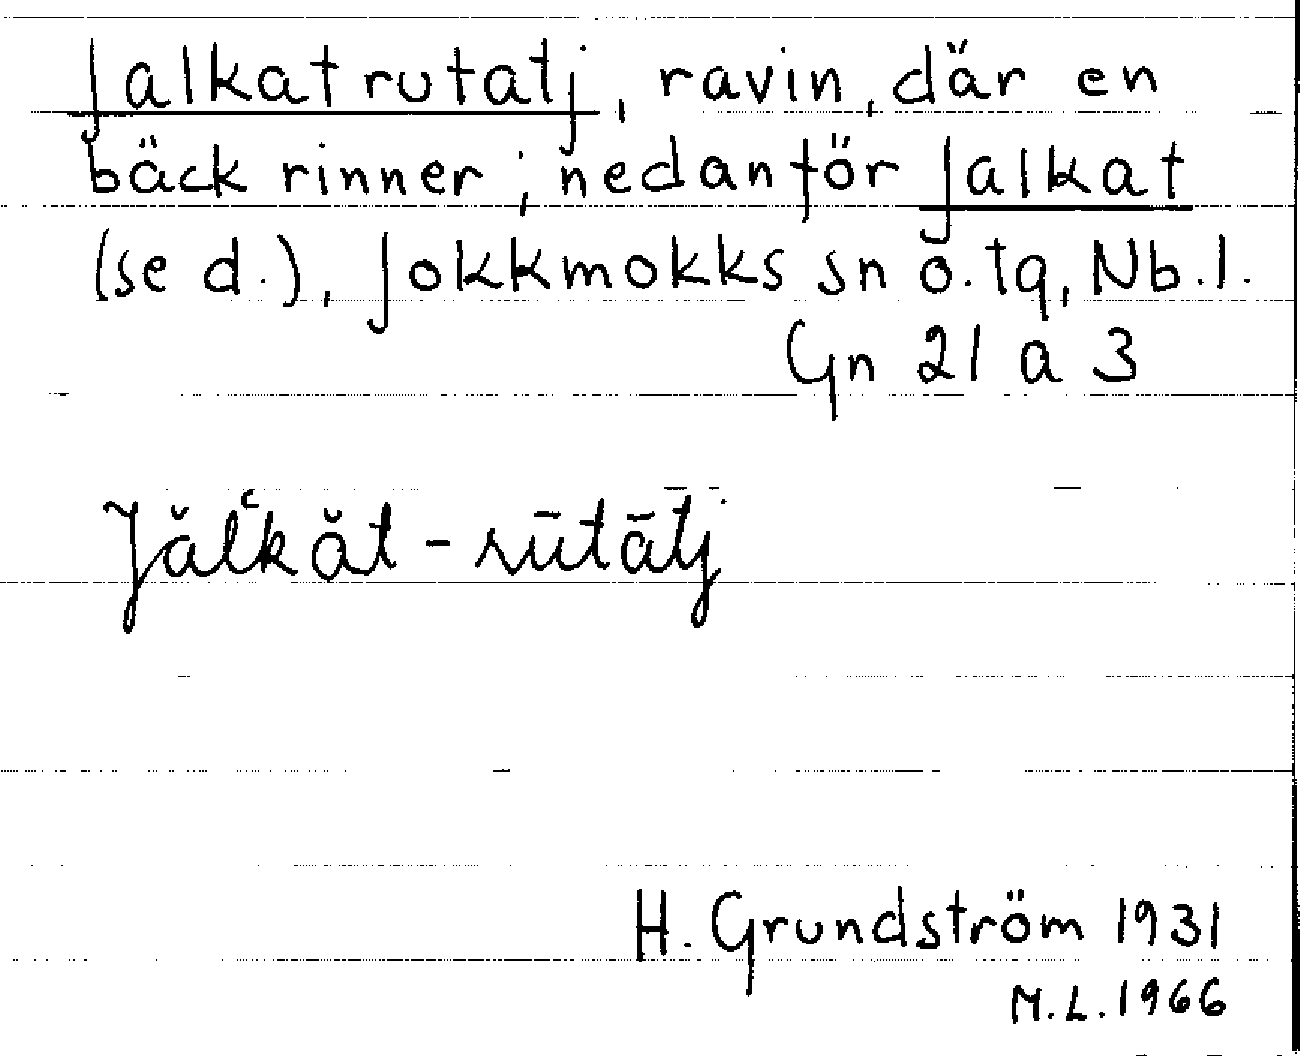 Jalkatrutatj, ravin, där en
bäck rinner; nedanför Jalkat
(se d.), Jokkmokks sn o. tg, Nb.l.
Gn 21 a 3
Jălʻkăt-rūtātj
H. Grundström 1931
M.L. 1966